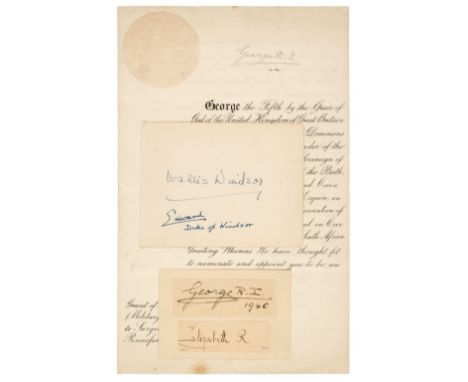 George R. I.
George the Fifth by the Grace of
God of the United Kingdom of Great Britain
Dominions
nder of the
Sovereign of
the Bath,
and
Esquire, on
neration of
al on Our
South Africa
Greeting Whereas We have thought fit
to nominate and appoint you to be an
Wallis Windsor
Edward
Duke of Windsor
George R. I.
1940
Elizabeth R
Grant of
Military
to Surge